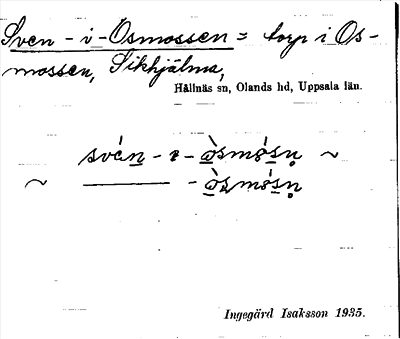 Sven - i - Osmossen = torp i Os-
mossen, Sikhjälma,
Hållnäs sn, Olands hd, Uppsala län.
svén - ı - òsmósn̥ ~
~ ——— - òsmósn̥
Ingegärd Isaksson 1935.